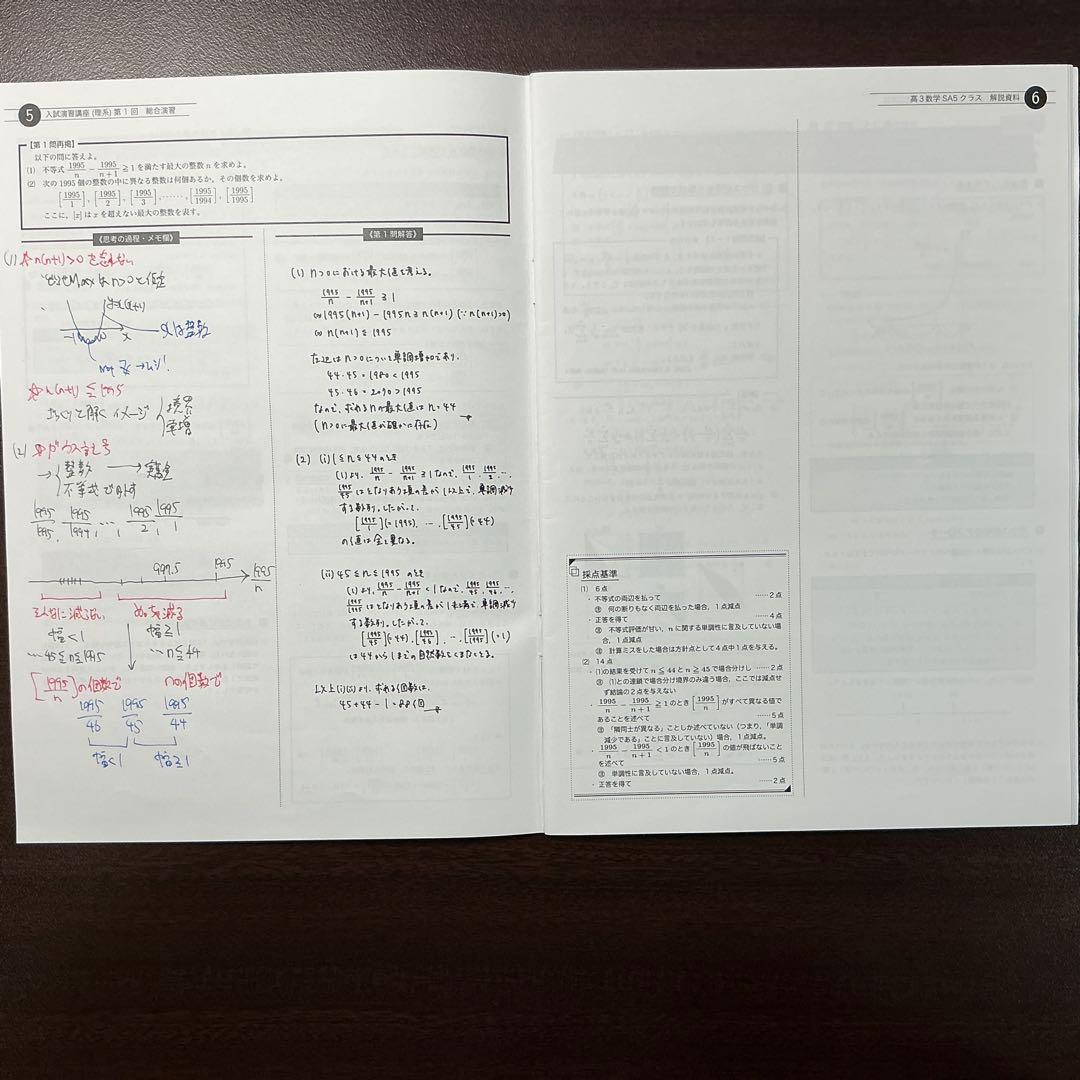 5 入試演習講座(理系)第1回 総合演習
【第1問再掲】
以下の問に答えよ。
(1) 不等式 1995/n − 1995/(n+1) ≧ 1 を満たす最大の整数 n を求めよ。
(2) 次の1995個の整数の中に異なる整数は何個あるか。その個数を求めよ。
[1995/1], [1995/2], [1995/3], ……, [1995/1994], [1995/1995]
ここに, [x] は x を超えない最大の整数を表す。
《思考の過程・メモ欄》
(1) n(n+1)>0 を忘れない
Max は n>0 と仮定
x(x+1)
-1 0 x
xは整数
n(n+1) ≦ 1995
ざっくりと解くイメージ 境界 単増
(2) ガウス記号
→ 整数 → 実
不等式で外す
1995/1995, 1995/1994, …, 1995/2, 1995/1
997.5 1995 1995/n
そんなに減らない めっちゃ減る
幅<1 幅≧1
∴ 45≦n≦1995 ∴ n≦44
[1995/n]の個数で nの個数で
1995/46 1995/45 1995/44
幅<1 幅≧1
《第1問解答》
(1) n>0における最大値を考える。
1995/n − 1995/(n+1) ≧ 1
⇔ 1995(n+1) − 1995n ≧ n(n+1) (∵ n(n+1)>0)
⇔ n(n+1) ≦ 1995
左辺は n>0 について単調増加であり、
44・45 = 1980 < 1995
45・46 = 2070 > 1995
なので、求めるnの最大値は n = 44
(n>0に最大値が確かに存在)
(2) (i) 1≦n≦44のとき
(1)より、1995/n − 1995/(n+1) ≧ 1 なので、1995/1, 1995/2, …,
1995/45 はとなりあう項の差が1以上で、単調減少
する数列。したがって、
[1995/1](=1995), …, [1995/45](=44)
の値は全て異なる。
(ii) 45≦n≦1995 のとき
(1)より、1995/n − 1995/(n+1) < 1 なので、1995/45, 1995/46, …,
1995/1995 はとなりあう項の差が1未満で、単調減少
する数列。したがって、
[1995/45](=44), [1995/46], …, [1995/1995](=1)
は44から1までの自然数をくまなくとる。
以上(i)(ii)より、求める個数は、
45+44−1=88個
高3数学SA5クラス 解説資料 6
採点基準
(1) 6点
・不等式の両辺を払って ……2点
㊟ 何の断りもなく両辺を払った場合, 1点減点
・正答を得て ……4点
㊟ 不等式評価が甘い, n に関する単調性に言及していない場
合, 1点減点
㊟ 計算ミスをした場合は方針点として4点中1点を与える。
(2) 14点
・(1)の結果を受けて n ≦ 44 と n ≧ 45 で場合分けし ……2点
㊟ (1)との連鎖で場合分け境界のみ違う場合, ここでは減点せ
ず結論の2点を与えない
・1995/n − 1995/(n+1) ≧ 1 のとき [1995/n] がすべて異なる値で
あることを述べて ……5点
㊟ 「隣同士が異なる」ことしか述べていない(つまり,「単調
減少である」ことに言及していない)場合, 1点減点。
・1995/n − 1995/(n+1) < 1 のとき [1995/n] の値が飛ばないこと
を述べて ……5点
㊟ 単調性に言及していない場合, 1点減点。
・正答を得て ……2点